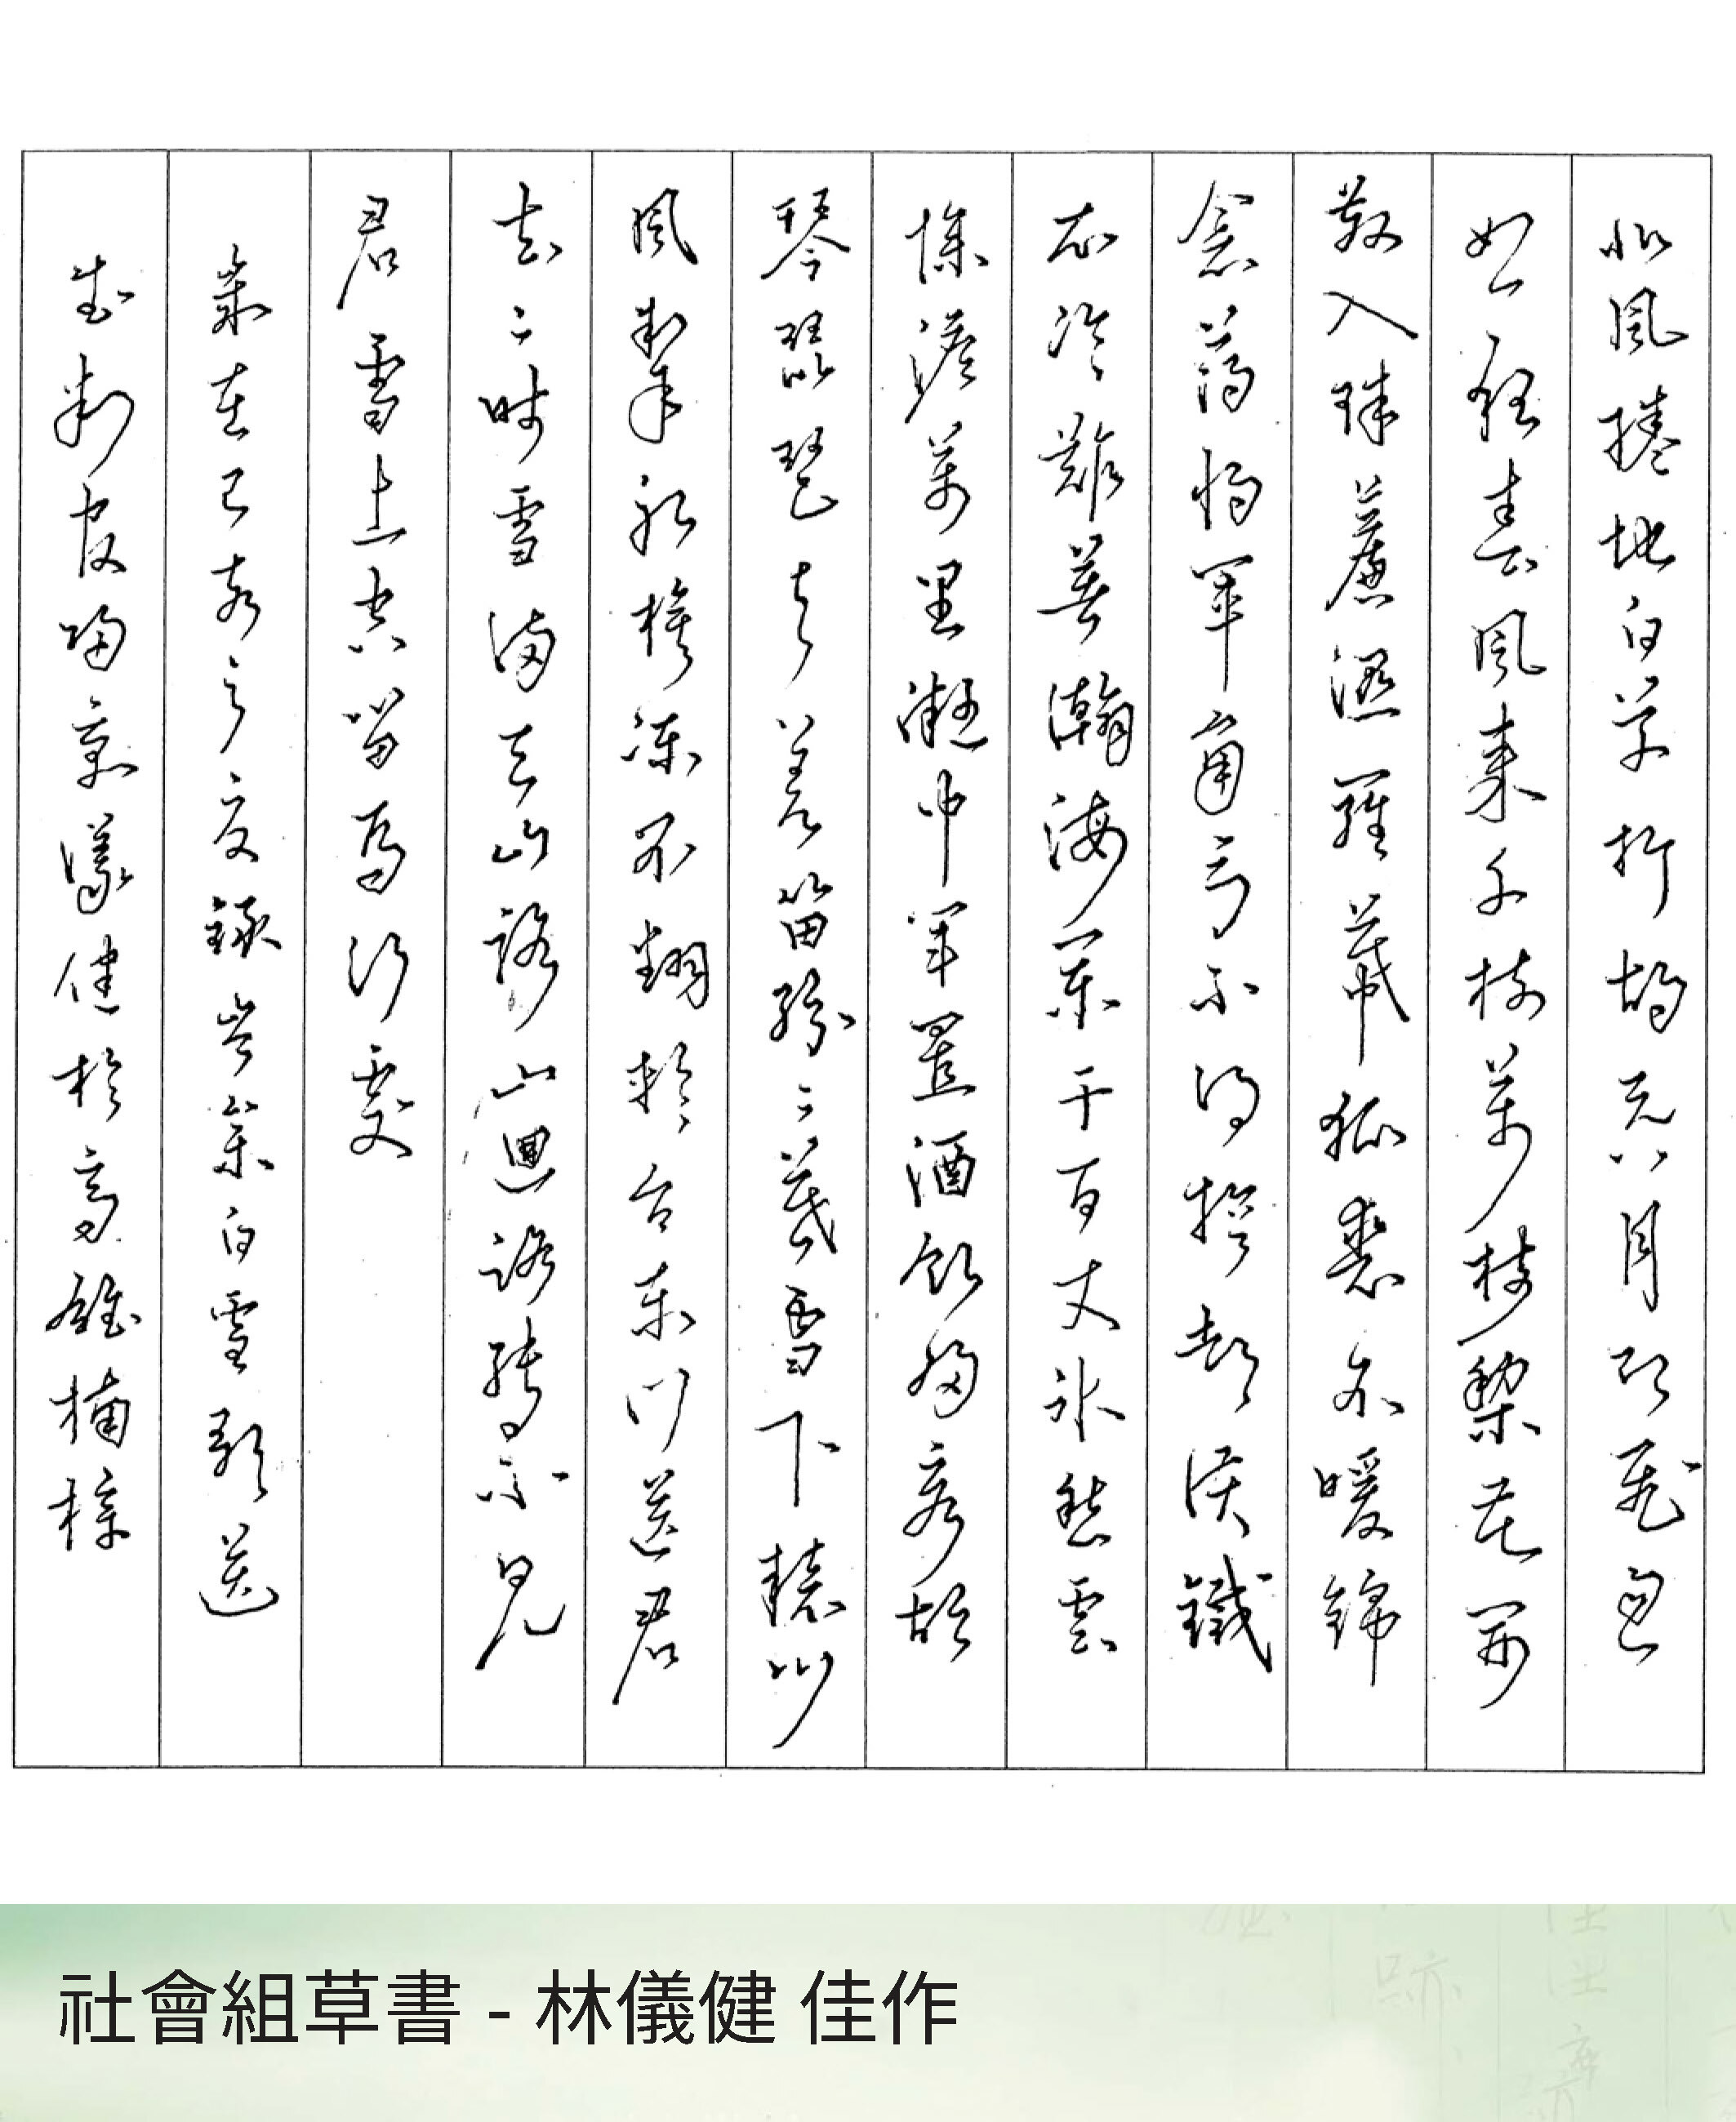 北風捲地白草折胡天八月即飛忽
如一夜春風來千樹萬樹梨花開
散入珠簾濕羅幕狐裘不暖錦
衾薄將軍角弓不得控都護鐵
衣冷難著瀚海闌干百丈冰愁雲
慘澹萬里凝中軍置酒飲歸客胡
琴琵琶與羌笛紛〻暮雪下轅門
風掣紅旗凍不翻輪台東門送君
去〻時雪滿天山路山迴路轉不見
君雪上空留馬行處
歲在己亥之夏錄岑參白雪歌送
武判官歸京 儀健於高雄楠梓
社會組草書 - 林儀健 佳作